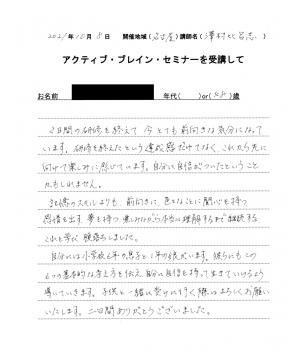 2021年10月8日 開催地域(名古屋)講師名(澤村
アクティブ・ブレイン・セミナーを受講して
お名前 年代( )or( )歳
2日間の研修を終えて 今とても前向きな気分になって
います。研修を終えたという達成感だけでなく、これから先に
向けて楽しみに感じています。自分に自信がついたということ
かもしれません。
記憶のスキルよりも、前向きに、色々なことに関心を持つ
感情を出す 夢を持つ 楽しみながら 本当に理解するまで継続する
これを学び 腹落ちしました。
自分には小学校6年の息子と1年の娘がいます。彼らにもこの
6つの基本的な考え方を伝え、自分に自信を持って生きていけるよう
導いていきます。子供と一緒に受けに行く際はよろしくお願い
いたします。二日間ありがとうございました。